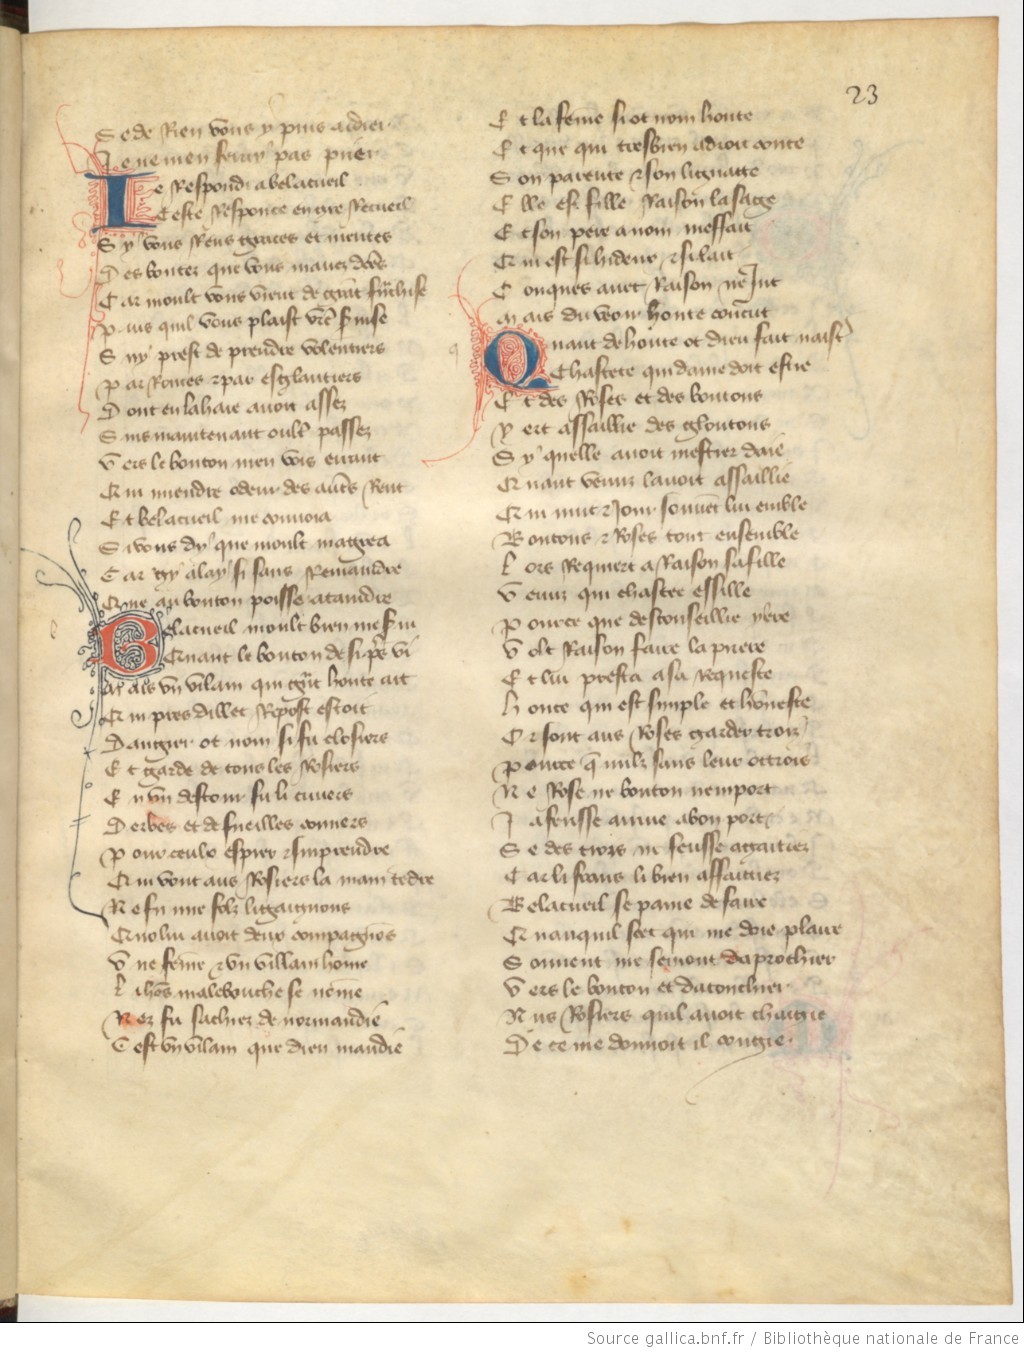 23
Se de Rien vous y puis aidier
Je ne men feray pas prier
Ie Respondi a belacueil
Ceste Responce en gre Recueil
Sy vous Rens graces et merites
Des bontez que vous mauez dites
Car moult vous vient de grāt frāchise
Puis quil vous plaist vr̄e suise
Suy prest de prendre volentiers
Par Ronces et par esglantiers
Dont en la haie auoit assez
Suis maintenant oult' passez
Vers le bouton men vois errant
Qui miendre odeur des aut's Rent
Et belacueil me conuoia
Si vous dy que moult magrea
Car gy alay si sans Remaindre
Que au bouton poisse ataindre
Belacueil moult bien me sui
Quant le bouton de si p̄s vi
Mais vn vilain qui grāt honte ait
Qui pres dillec Repost estoit
Dangier ot nom si fu closiers
Et garde de tous les Rosiers
En vn destour fu li cuuers
Derbes et de fueilles couuers
Pour ceulx espier et seurprendre
Qui vont aus Rosiers la main tēdre
Ne fu mie selz li gaignons
Quo lui auoit deux compagnōs
Vne fēme et vn villain home
Li
malebouche se nōme
Nez fu sachiez de normandie
Cest vn vilain que dieu maudie
Et la fēme si ot nom honte
Et que qui tresbien adroit conte
Son parente et son lignatte
Elle est fille Raison la sage
Et son pere a nom messait
Qui est si hideux et si lait
Conques auec Raison ne Jut
Mais du veoir honte concut
Quant de honte ot dieu fait naist'
Chastete qui dame doit estre
Et des Roses et des boutons
Y ert assaillie des gloutons
Sy quelle auoit mestier daie
Quant venuz lauoit assaillie
Qui nuit et Jour souuēt lui emble
Boutons et Roses tout ensemble
Lors Requiert a Raison sa fille
Venuz qui chastee essille
Pource que desconseillie yere
Volt Raison faire la priere
Et lui presta a sa Requeste
Honte qui est simple et honneste
Or sont aus Roses garder troiz
Pource q̄ nulz sans leur ottrois
Ne Rose ne bouton nemport
Ja feusse arriue a bon port
Se des trois ne feusse agaitiez
Car li frans li bien affaitiez
Belacueil se paine de faire
Quanquil scet qui me doie plaire
Souuent me semont daprochier
Vers le bouton et datouchier
Aus Rosiers quil auoit chargie
De ce me donnoit il congie
Source gallica.bnf.fr / Bibliothèque nationale de France